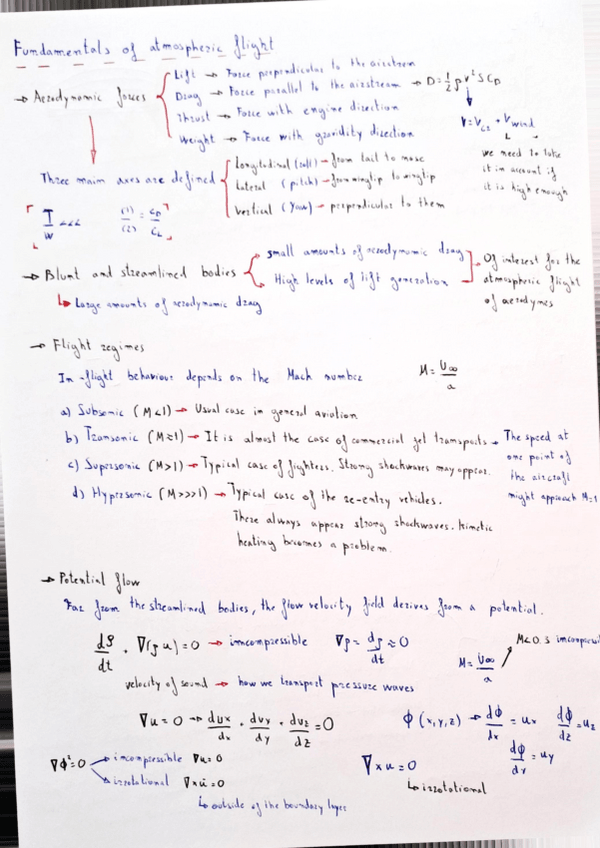 Fundamentals of atmospheric flight
→ Aerodynamic forces
Lift → Force perpendicular to the airstream
Drag → Force parallel to the airstream → D = 1/2 ρ v² S C_D
Thrust → Force with engine direction
Weight → Force with gravidity direction
V = V_CG + V_wind
we need to take
it in account if
it is high enough
Three main axes are defined
Longitudinal (roll) → from tail to nose
Lateral (pitch) → from wingtip to wingtip
Vertical (Yaw) → perpendicular to them
T/W <<< (1)/(2) = C_D/C_L
→ Blunt and streamlined bodies
small amounts of aerodynamic drag
High levels of lift generation
Of interest for the
atmospheric flight
of aerodynes
↳ Large amounts of aerodynamic drag
→ Flight regimes
In-flight behaviour depends on the Mach number M = U∞/a
a) Subsonic (M<1) → Usual case in general aviation
b) Transonic (M≈1) → It is almost the case of commercial jet transports → The speed at
one point of
the aircraft
might approach M=1
c) Supersonic (M>1) → Typical case of fighters. Strong shockwaves may appear.
d) Hypersonic (M>>>1) → Typical case of the re-entry vehicles.
There always appear strong shockwaves. Kinetic
heating becomes a problem.
→ Potential flow
Far from the streamlined bodies, the flow velocity field derives from a potential.
dρ/dt + ∇(ρu) = 0 → incompressible ∇ρ = dρ/dt ≈ 0
M = U∞/a M<0.3
velocity of sound → how we transport pressure waves
∇u = 0 → dux/dx + dvy/dy + dvz/dz = 0
Φ(x,y,z) → dΦ/dx = ux dΦ/dz = uz
dΦ/dy = uy
∇Φ² = 0
incompressible ∇u = 0
irrotational ∇xu = 0
↳ outside of the boundary layer
∇xu = 0
↳ irrotational